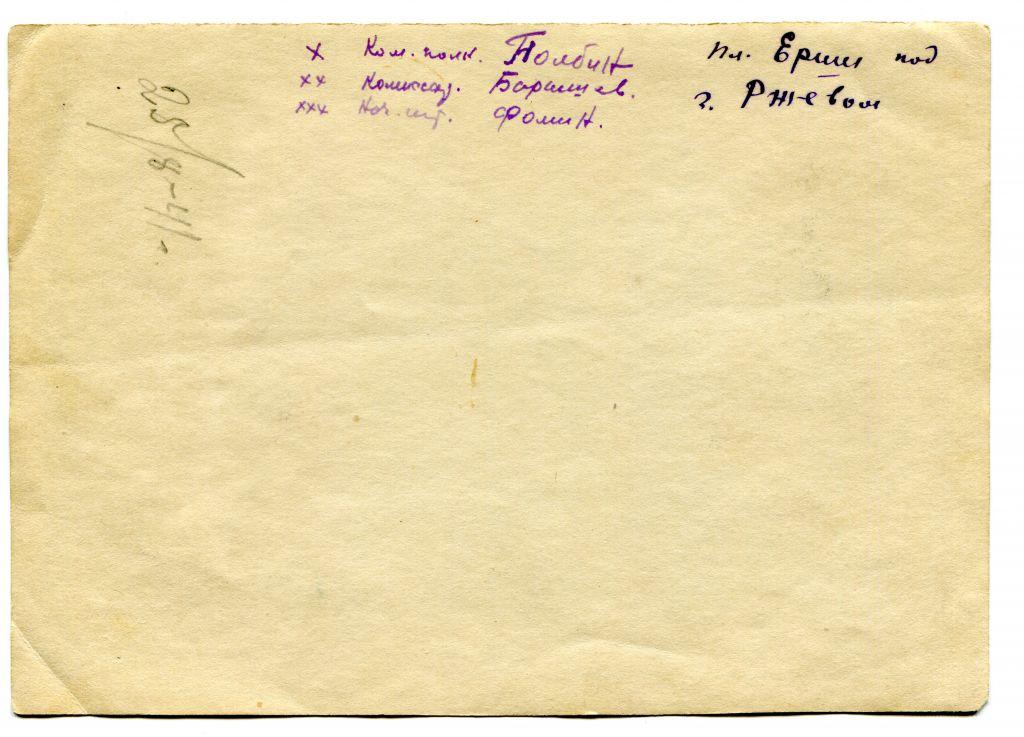 x Ком. полк. Полбин
xx Комиссар. Барышев.
xxx Нач. шт. Фомин.
пл. Ерши под
г. Ржевом
25/8-41